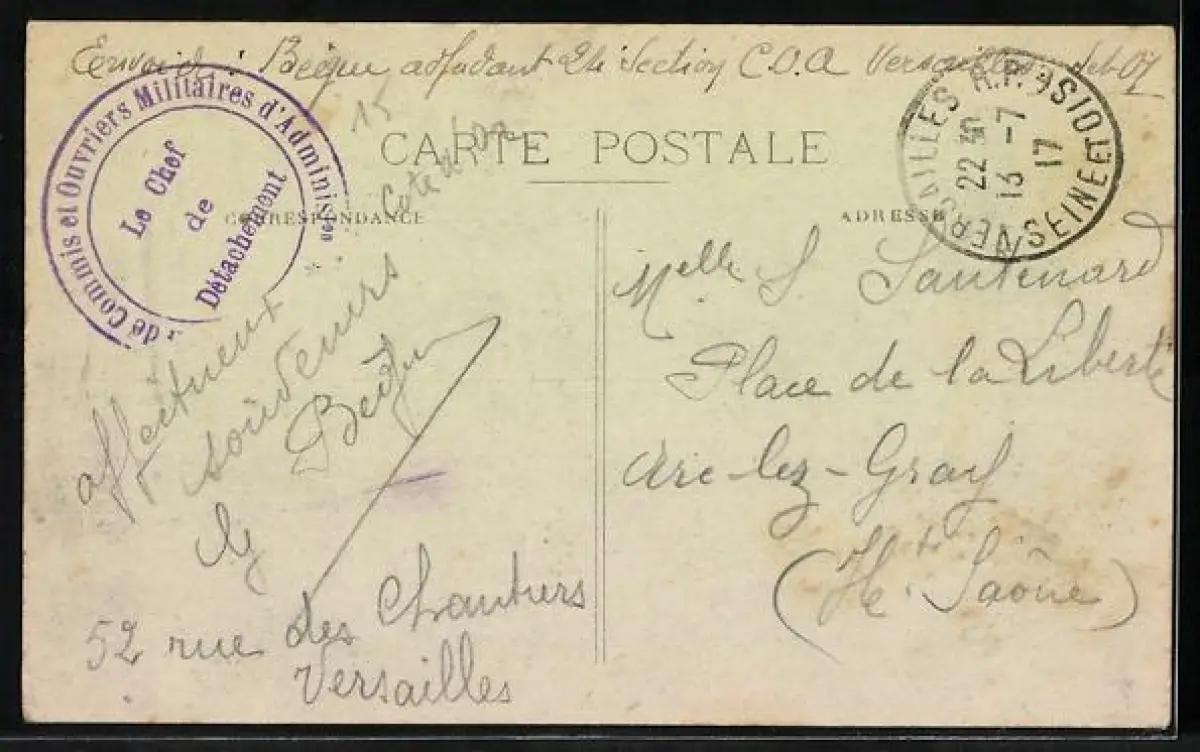 Envoi de : Bégin adjudant 24e Section C.O.A Versailles
15
Côte d'Or
de Commis et Ouvriers Militaires d'Administon
Le Chef
de
Détachement
VERSAILLES R.P.
22 30
13 -7
17
SEINE ET OISE
CARTE POSTALE
CORRESPONDANCE
ADRESSE
affectueux
souvenirs
52 rue des Chantiers
Versailles
Melle S. Sautenard
Place de la Liberté
Arc-lez-Gray
(Hte Saône)